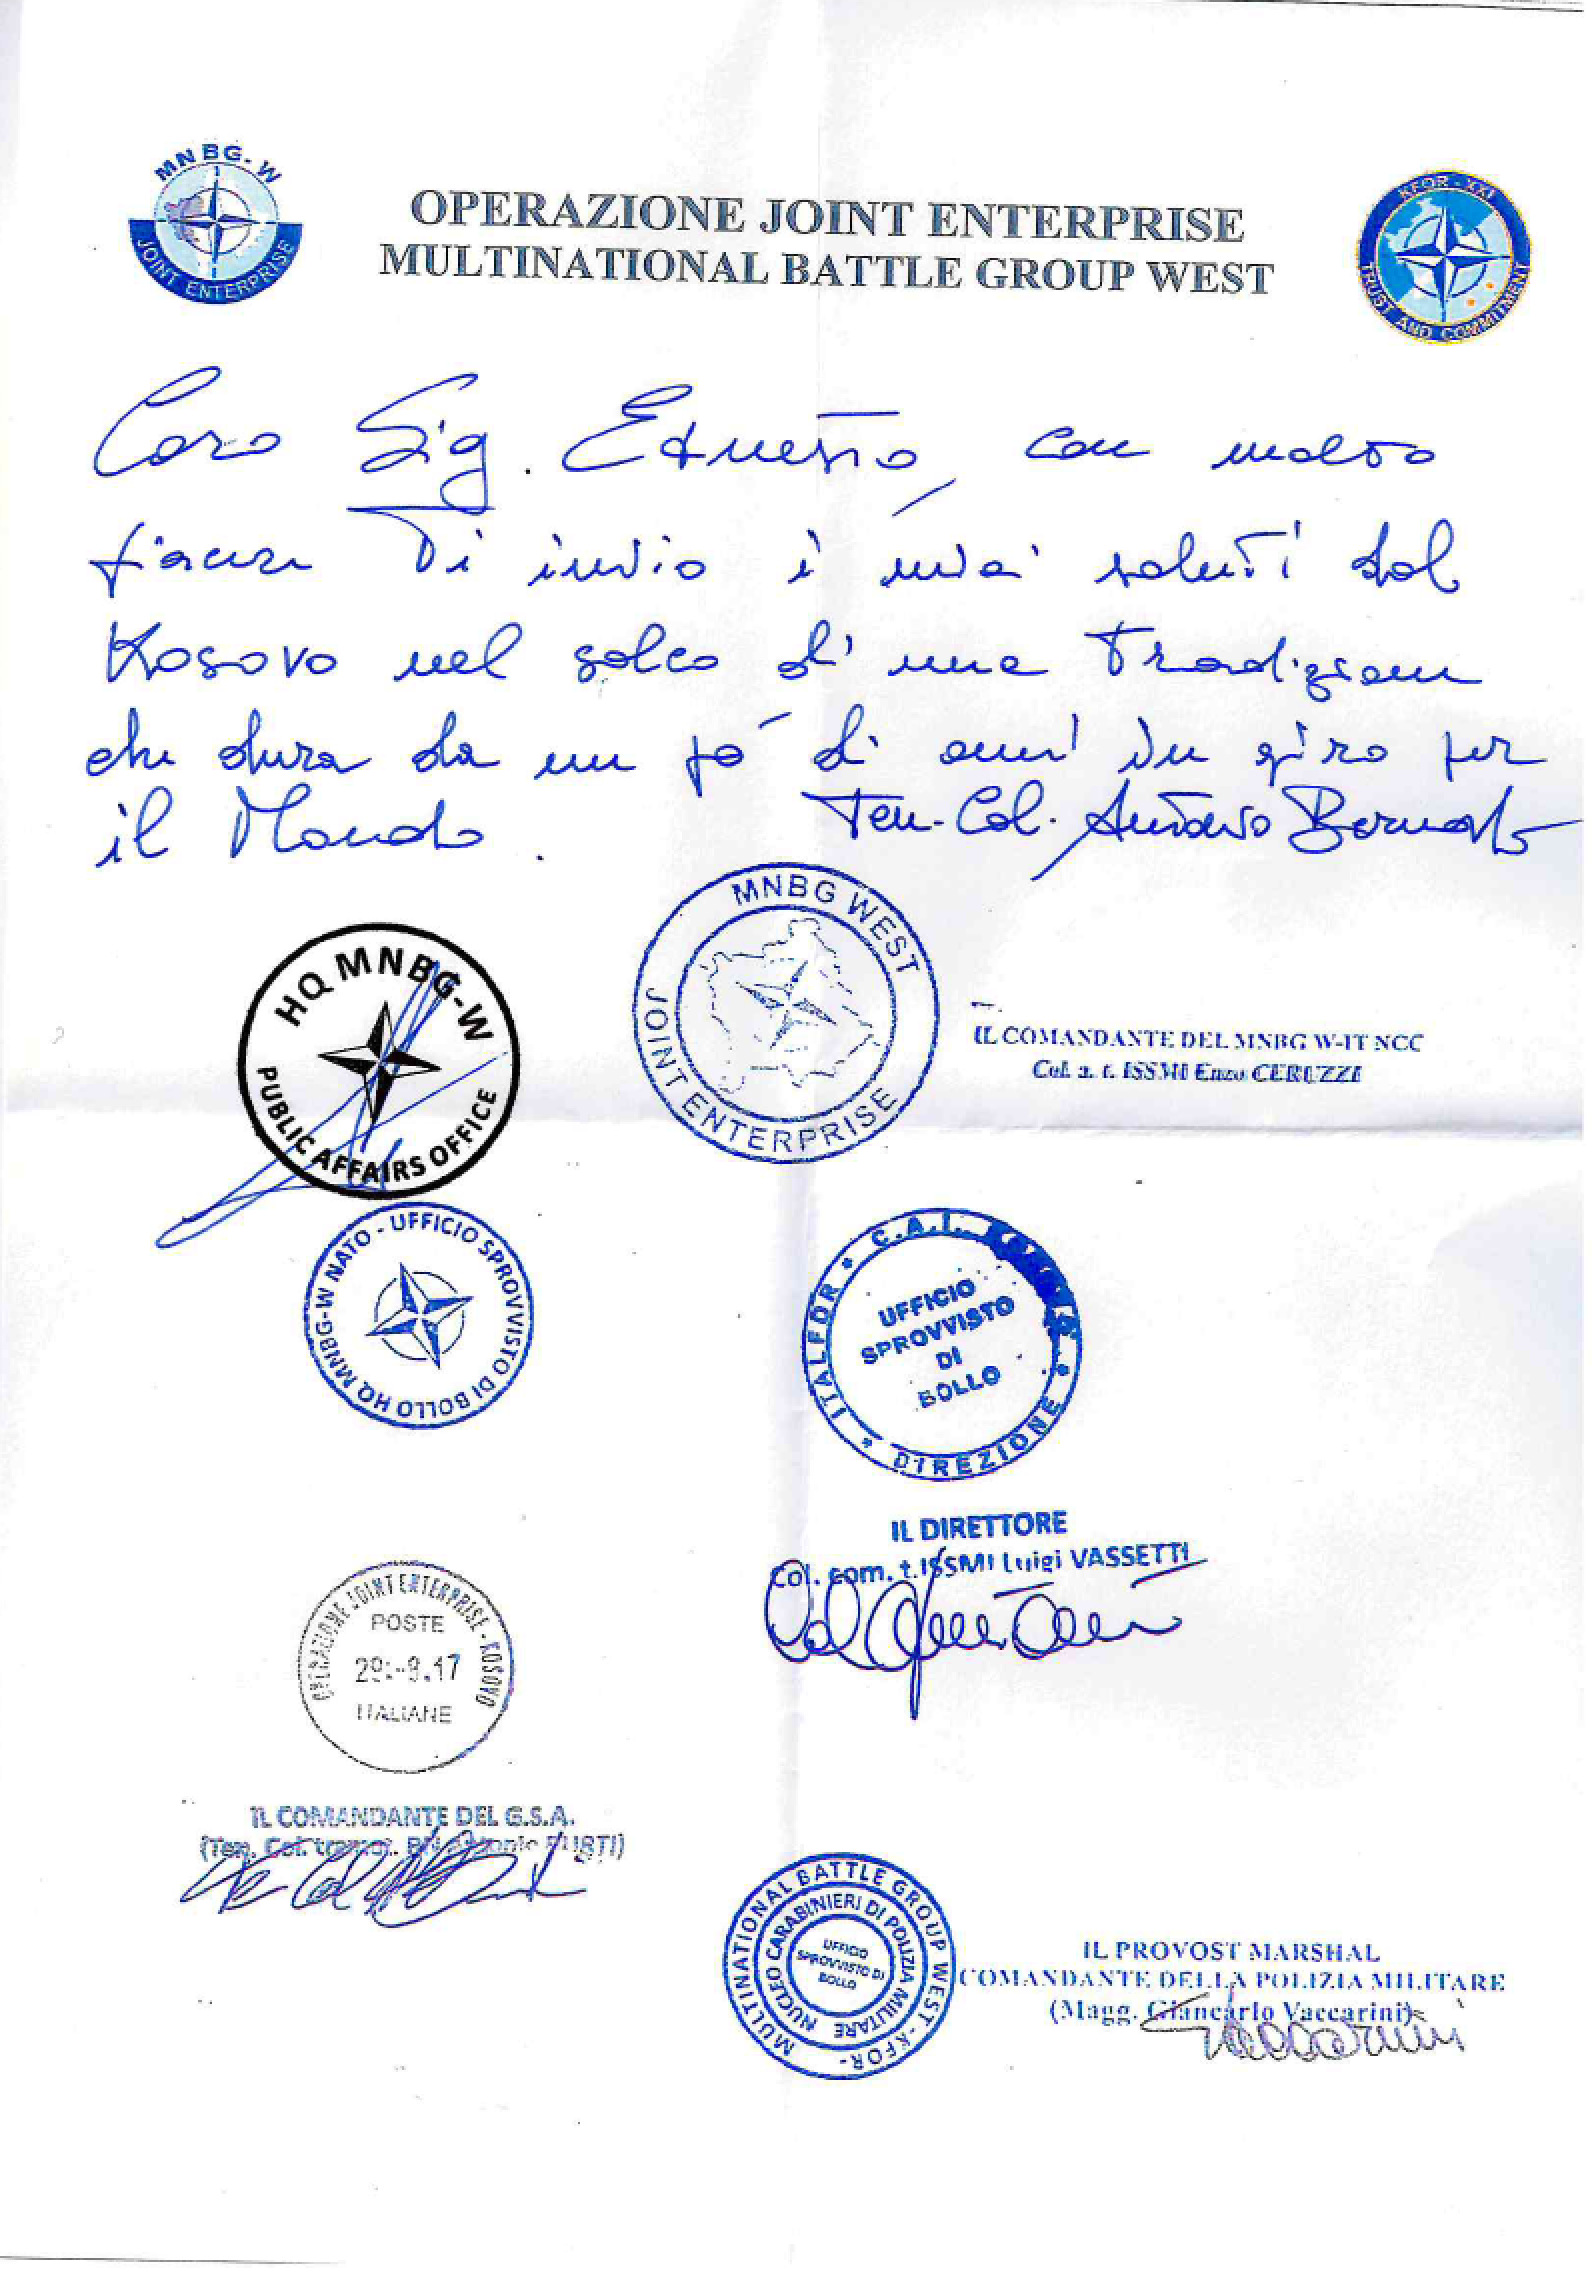 MNBG-W
JOINT ENTERPRISE
OPERAZIONE JOINT ENTERPRISE
MULTINATIONAL BATTLE GROUP WEST
KFOR - XXI
TRUST AND COMMITMENT
Caro Sig. con molto
piacere Ti invio i miei saluti dal
Kosovo nel solco di una Tradizione
che dura da un pó di anni in giro per
il Mondo.
Ten. Col. Antonio Bernardo
HQ MNBG-W
PUBLIC AFFAIRS OFFICE
MNBG WEST
JOINT ENTERPRISE
IL COMANDANTE DEL MNBG W-IT NCC
Col. a. t. ISSMI Enzo CERUZZI
HQ MNBG-W NATO - UFFICIO SPROVVISTO DI BOLLO
ITALFOR * C.A.I.
UFFICIO
SPROVVISTO
DI
BOLLO
* DIREZIONE *
IL DIRETTORE
Col. com. t.ISSMI Luigi VASSETTI
OPERAZIONE JOINT ENTERPRISE - KOSOVO
POSTE
29.-9.17
ITALIANE
IL COMANDANTE DEL G.S.A.
(Ten. Col.
MULTINATIONAL BATTLE GROUP WEST -KFOR-
NUCLEO CARABINIERI DI POLIZIA MILITARE
UFFICIO
SPROVVISTO DI
BOLLO
IL PROVOST MARSHAL
COMANDANTE DELLA POLIZIA MILITARE
(Magg. Giancarlo Vaccarini)
Vaccarini